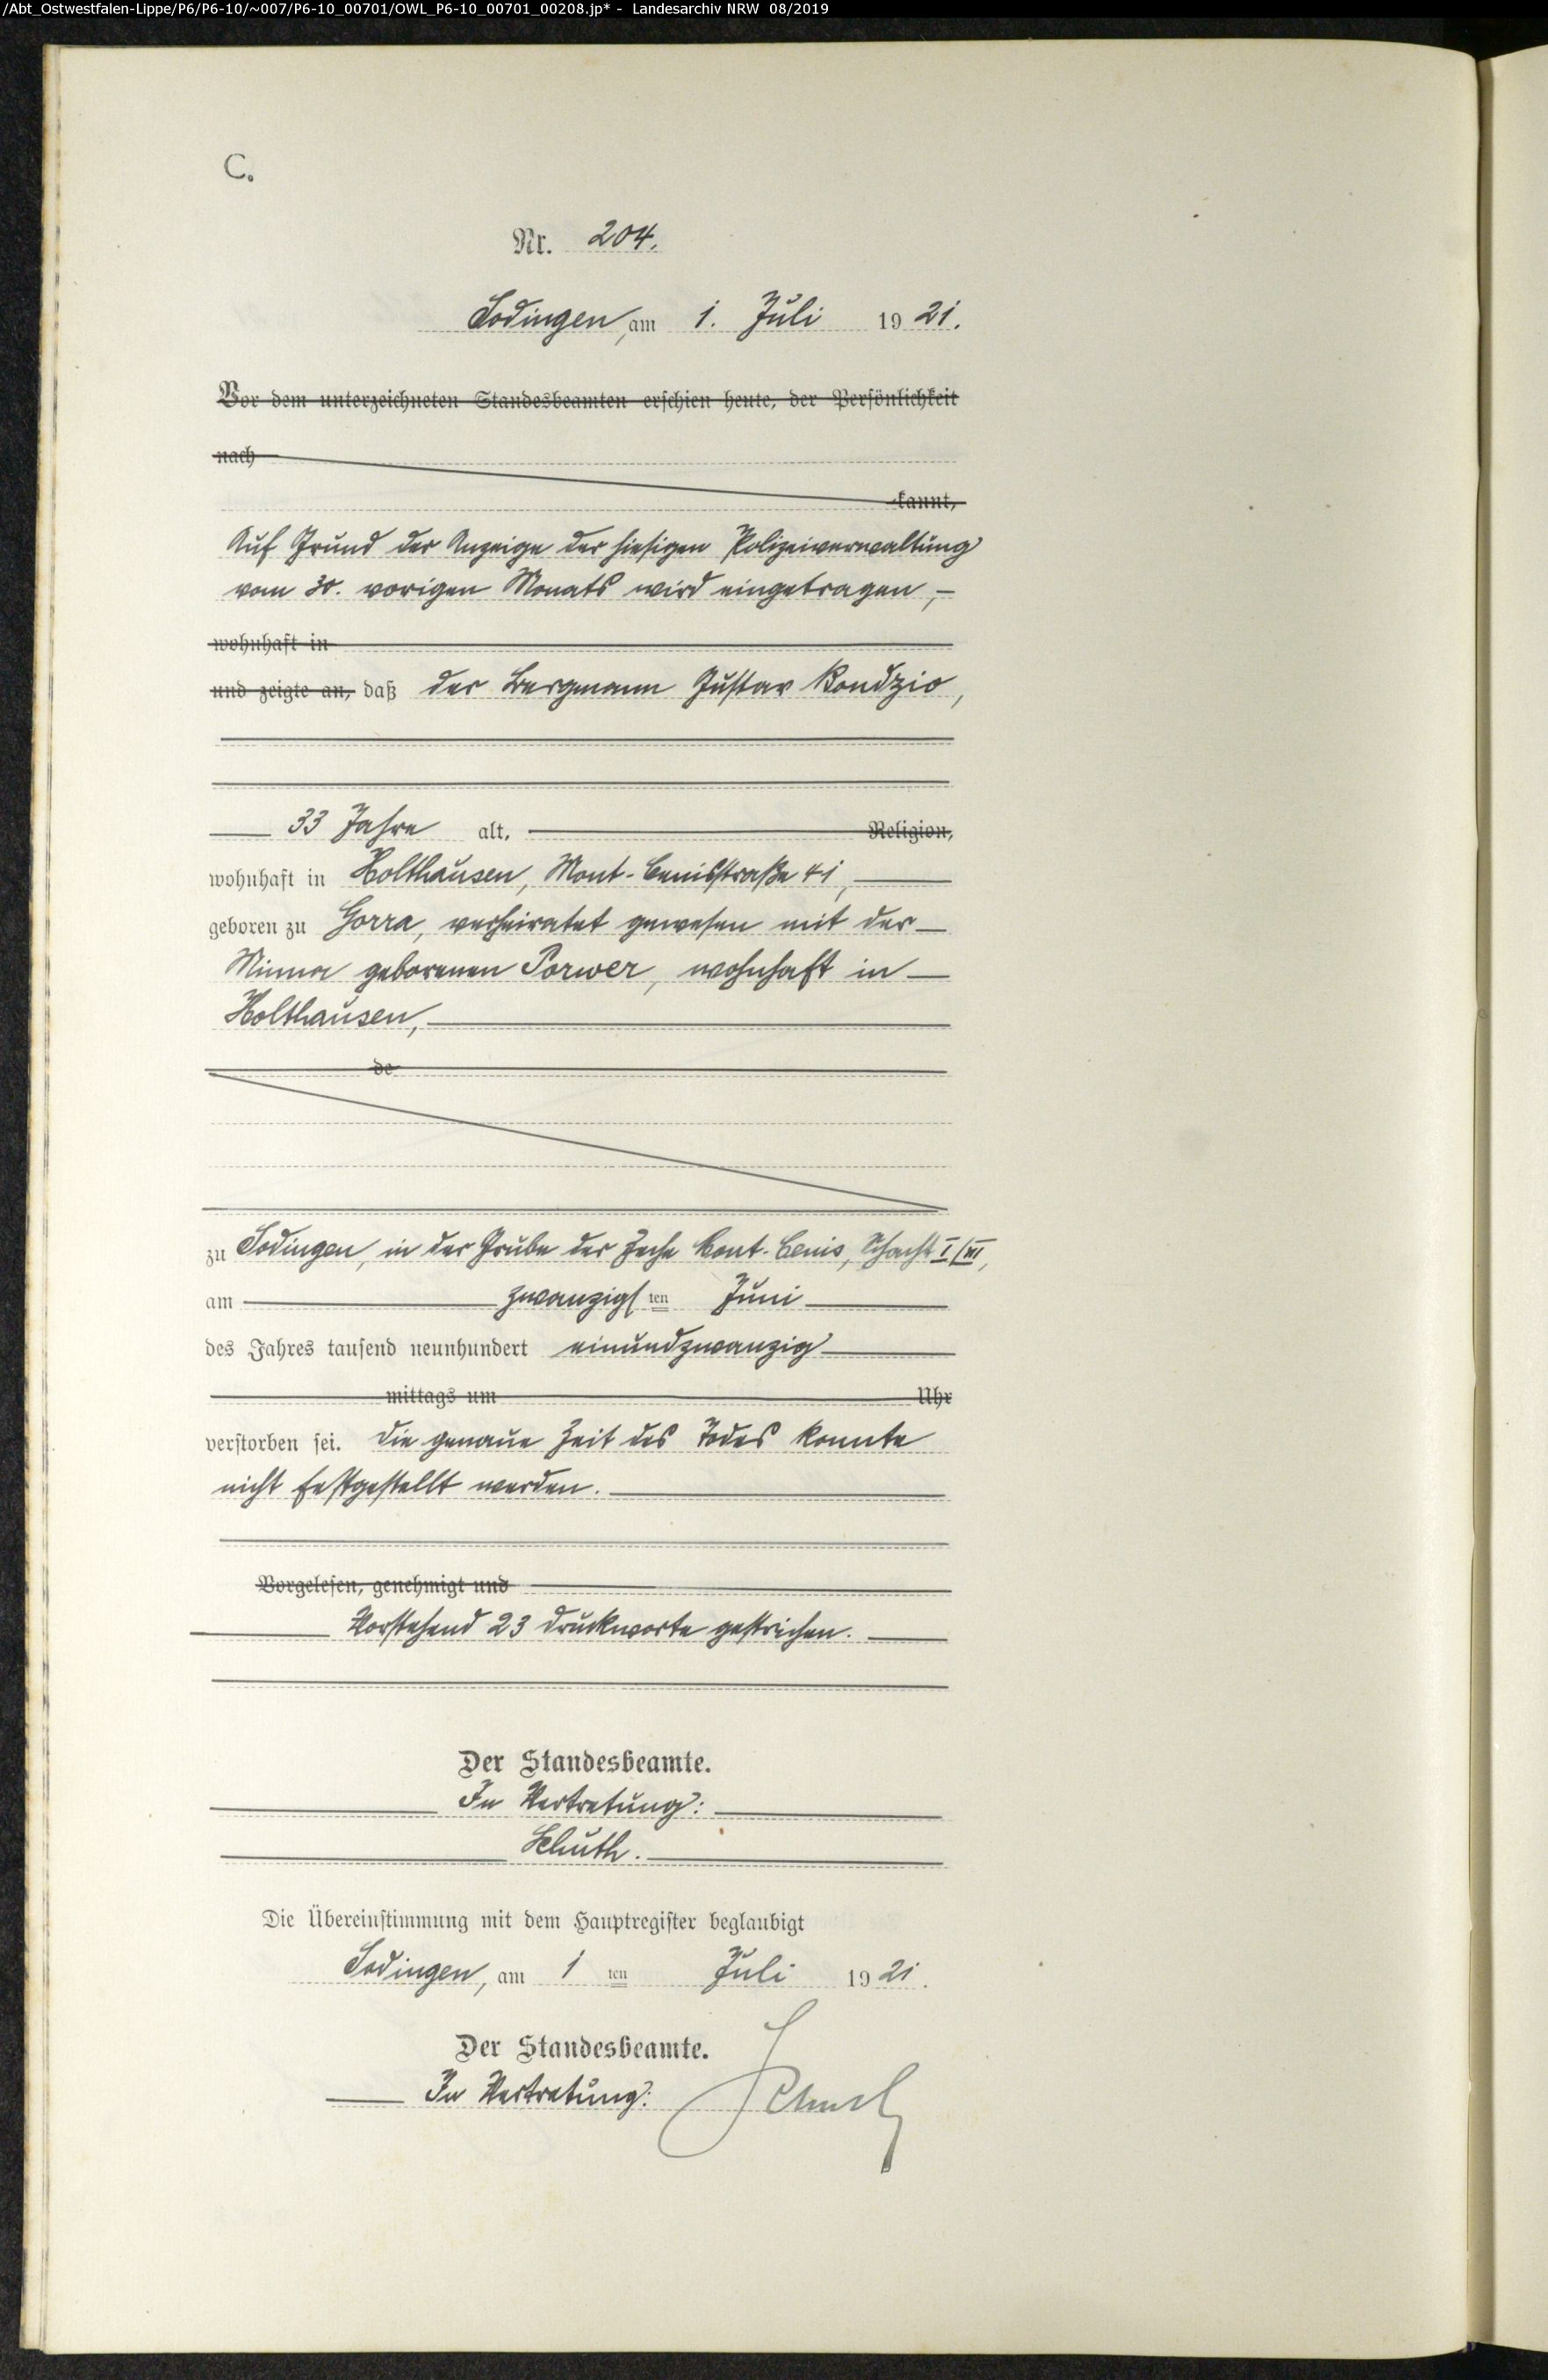 /Abt_Ostwestfalen-Lippe/P6/P6-10/~007/P6-10_00701/OWL_P6-10_00701_00208.jp* - Landesarchiv NRW 08/2019
C.
Nr. 204.
Sodingen, am 1. Juli 1921.
Vor dem unterzeichneten Standesbeamten erschien heute, der Persönlichkeit
nach
kannt,
Auf Grund der Anzeige der hiesigen Polizeiverwaltung
vom 30. vorigen Monats wird eingetragen, –
wohnhaft in
und zeigte an, daß der Bergmann Gustav Kondzio,
33 Jahre alt, Religion,
wohnhaft in Holthausen, Mont-Cenisstraße 41,
geboren zu Gorra, verheiratet gewesen mit der
Minna geborenen Porwer, wohnhaft in
Holthausen,
de
zu Sodingen, in der Grube der Zeche Mont-Cenis, Schacht I/III,
am zwanzigsten Juni
des Jahres tausend neunhundert einundzwanzig
mittags um Uhr
verstorben sei. Die genaue Zeit des Todes konnte
nicht festgestellt werden.
Vorgelesen, genehmigt und
Vorstehend 23 Druckworte gestrichen.
Der Standesbeamte.
In Vertretung:
Schuth.
Die Übereinstimmung mit dem Hauptregister beglaubigt
Sodingen, am 1 ten Juli 1921.
Der Standesbeamte.
In Vertretung: